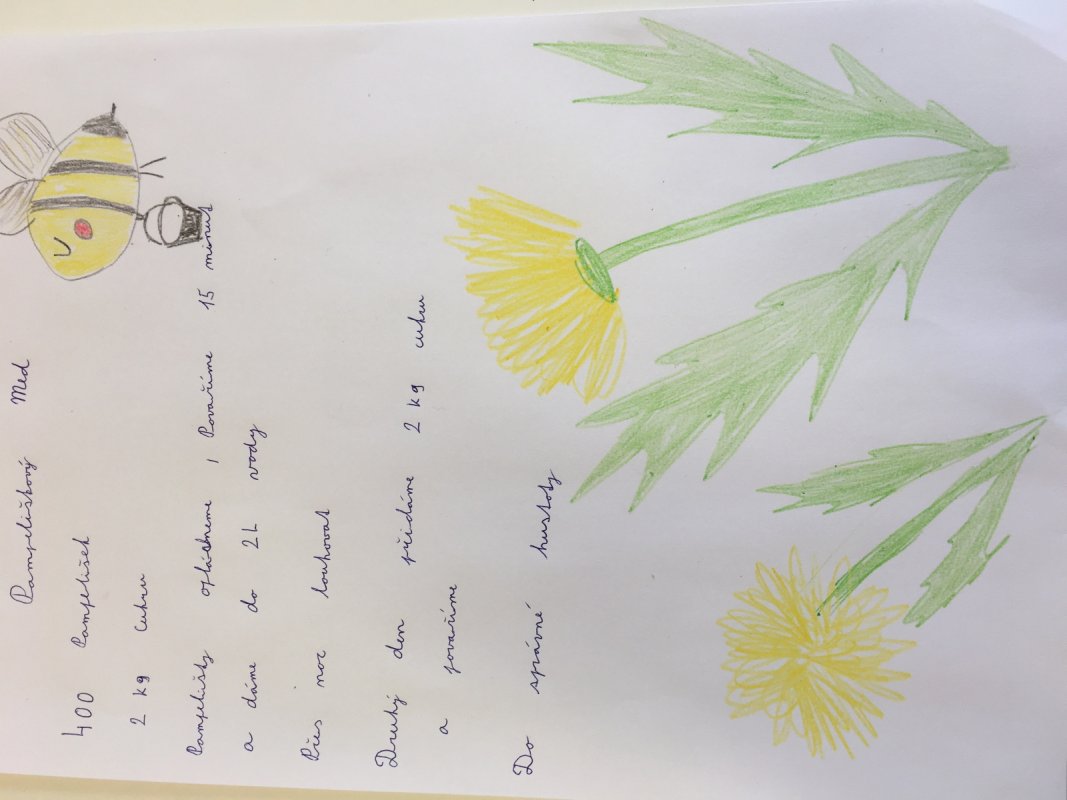 Pampeliškový Med
400 Pampelišek
2 kg Cukru
Pampelišky opláchneme , Povaříme 15 minut
a dáme do 2L vody
Přes noc louhovat
Druhý den přidáme 2 kg cukru
a povaříme
Do správné hustoty